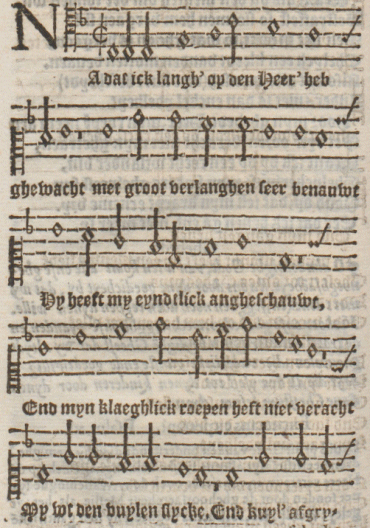 NA dat ick langh' op den Heer' heb
ghewacht met groot verlanghen seer benauwt
Hy heeft my eyndtlick angheschauwt,
End myn klaeghlick roepen heft niet veracht
My wt den vuylen slycke, End kuyl' afgry-